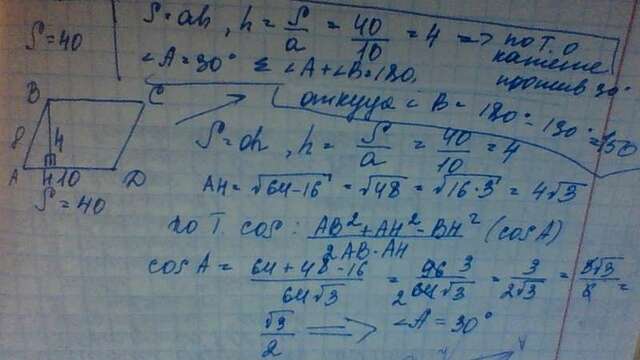 S=40
S=ah, h = S/a = 40/10 = 4 => по т. о
катете
против 30°
∠A=30° ∠A+∠B=180,
откуда ∠B = 180° - 30° = 150
B C
8 4
A H 10 D
S=40
S=ah, h = S/a = 40/10 = 4
AH = √64-16 = √48 = √16·3 = 4√3
по т. cos: AB²+AH²-BH²/2AB·AH (cosA)
cosA = 64+48-16/64√3 = 96 3/2 64√3 = 3/2√3 = 3√3/6 =
√3/2 => ∠A=30°